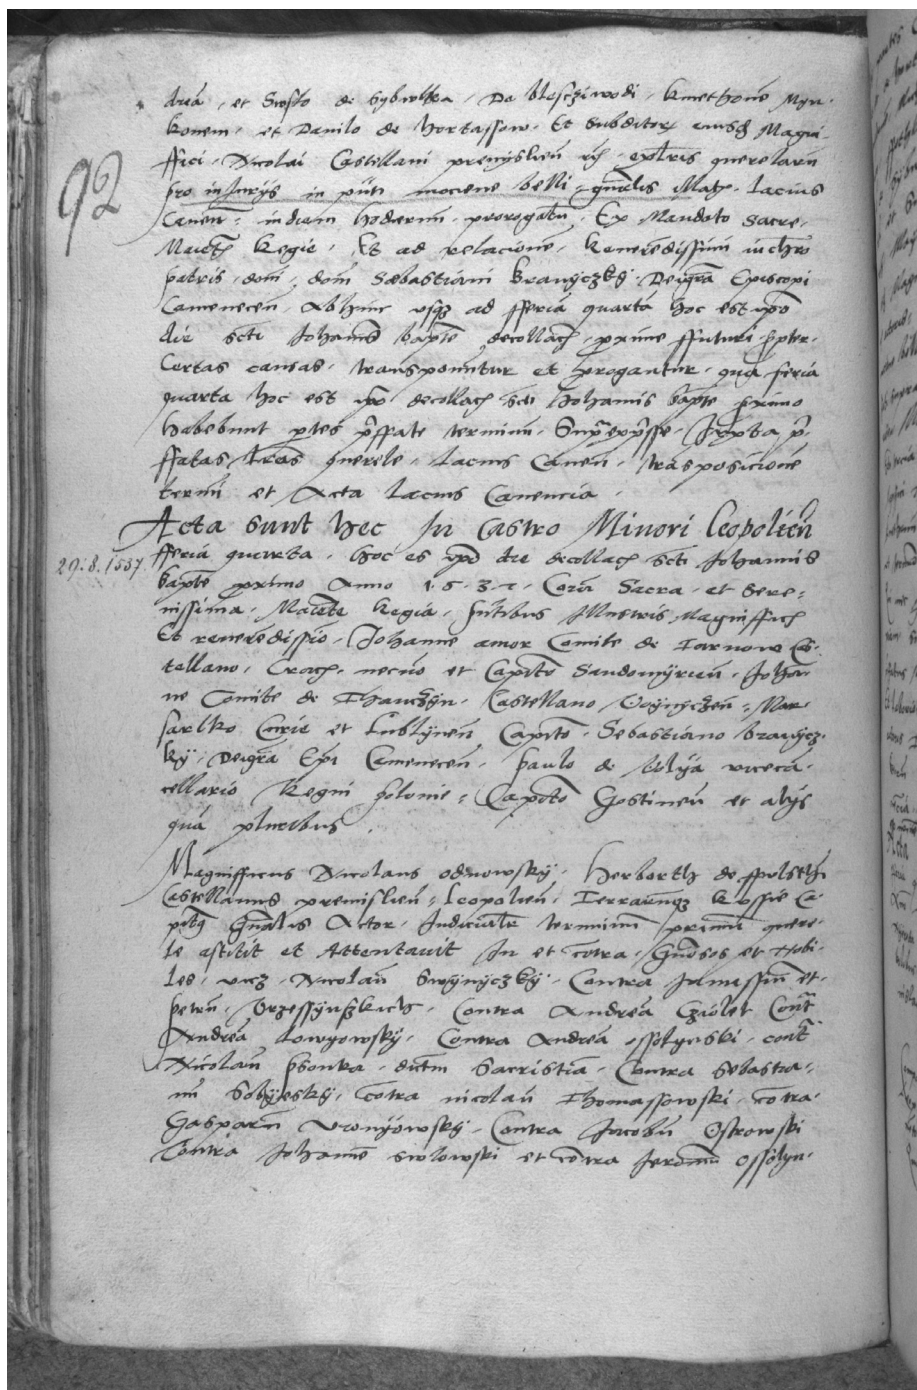 92
druā, et Swsko de Sybwlka, Da blesczi wodi, kmethone Myn-
konem, et Danilo de hortassow. Et Subditorx eiusd Magni-
ffici. Nicolai Castillani premyslien rcz. exoris querelarū
pro inJurys in pūti mocione belli gnālis Matz. Lacius
Canen in diem hodiernū prorogatū. Ex Mandato Sacre
Maiettz Regie, Et ad relacione, Reuerēdissimi in chro
patris, domī, domī Sæbastiani branyczky Deigrā Episcopi
Camenecen, Abhinc vsqz ad fferia quartā hoc est ipō
die scti Johanīs baptē decollacz. proxime ffuturi propter
Certas causas. transponūtur et prorogantur. qua feria
quarta hoc est ipō decollacz scti Johanis bapte proximo
habebunt ptes pffate terminū. Suprexpsse. Juxta p-
ffatas lras querele. lacius Canen. trasposicione
termī et Acta lacius Canencia.
Acta sunt hec In Castro Minori Leopolien
fferia quarta. hoc es ipō die decollacz scti Johannis
29.8.1537
bapte proximo Anno 1537. Corā Sacra. et Sere-
nissima. Maiēte Regia. pntibus Illustris Magnifficz
Et reuerēdissio. Johanne amor Comite de Tarnow Cas-
tellano. Cracz. necnō et Capitō Sandomyrien. Johan
ne Comite de Thanczyn. Castellano Voynyczen. Mar-
sarlko Curie et Lublynen Capitō. Sebastiano branycz-
ky. Deigrā Epī Camenecen. paulo de Volya vicecā-
cellario Regni polonie. Capitō Gostinen et alys
quā pluribus.
Magnifficus Nicolaus odnowsky. Herborth de ffulsthi
Castellanus premislien. Leopolien. Terrarumqz Russie Ca-
pitꝰ Gnālis Actor. Judicialr terminū primū quere-
le astitit et Attentauit In et cōtra. Gnōsos et Nobi-
les. vicz. Nicolaū Swynyczky. Contra Jnmassiū et
petrū. Orzessynskich. Contra Andreā Cziolek Contr
Andreā Lowyowsky. Contra Andreā ossolynski. contr
Nicolaū psonka. dictm Sacristia. Contra Sebastia-
nū Sobyesky. cōtra nicolaū Thomassowski. cōtra
Gasparū vronyowsky. Contra Jacobū Ostrowski
Contra Johanē swlowski et cōtra Jeronimū Ossolyn-